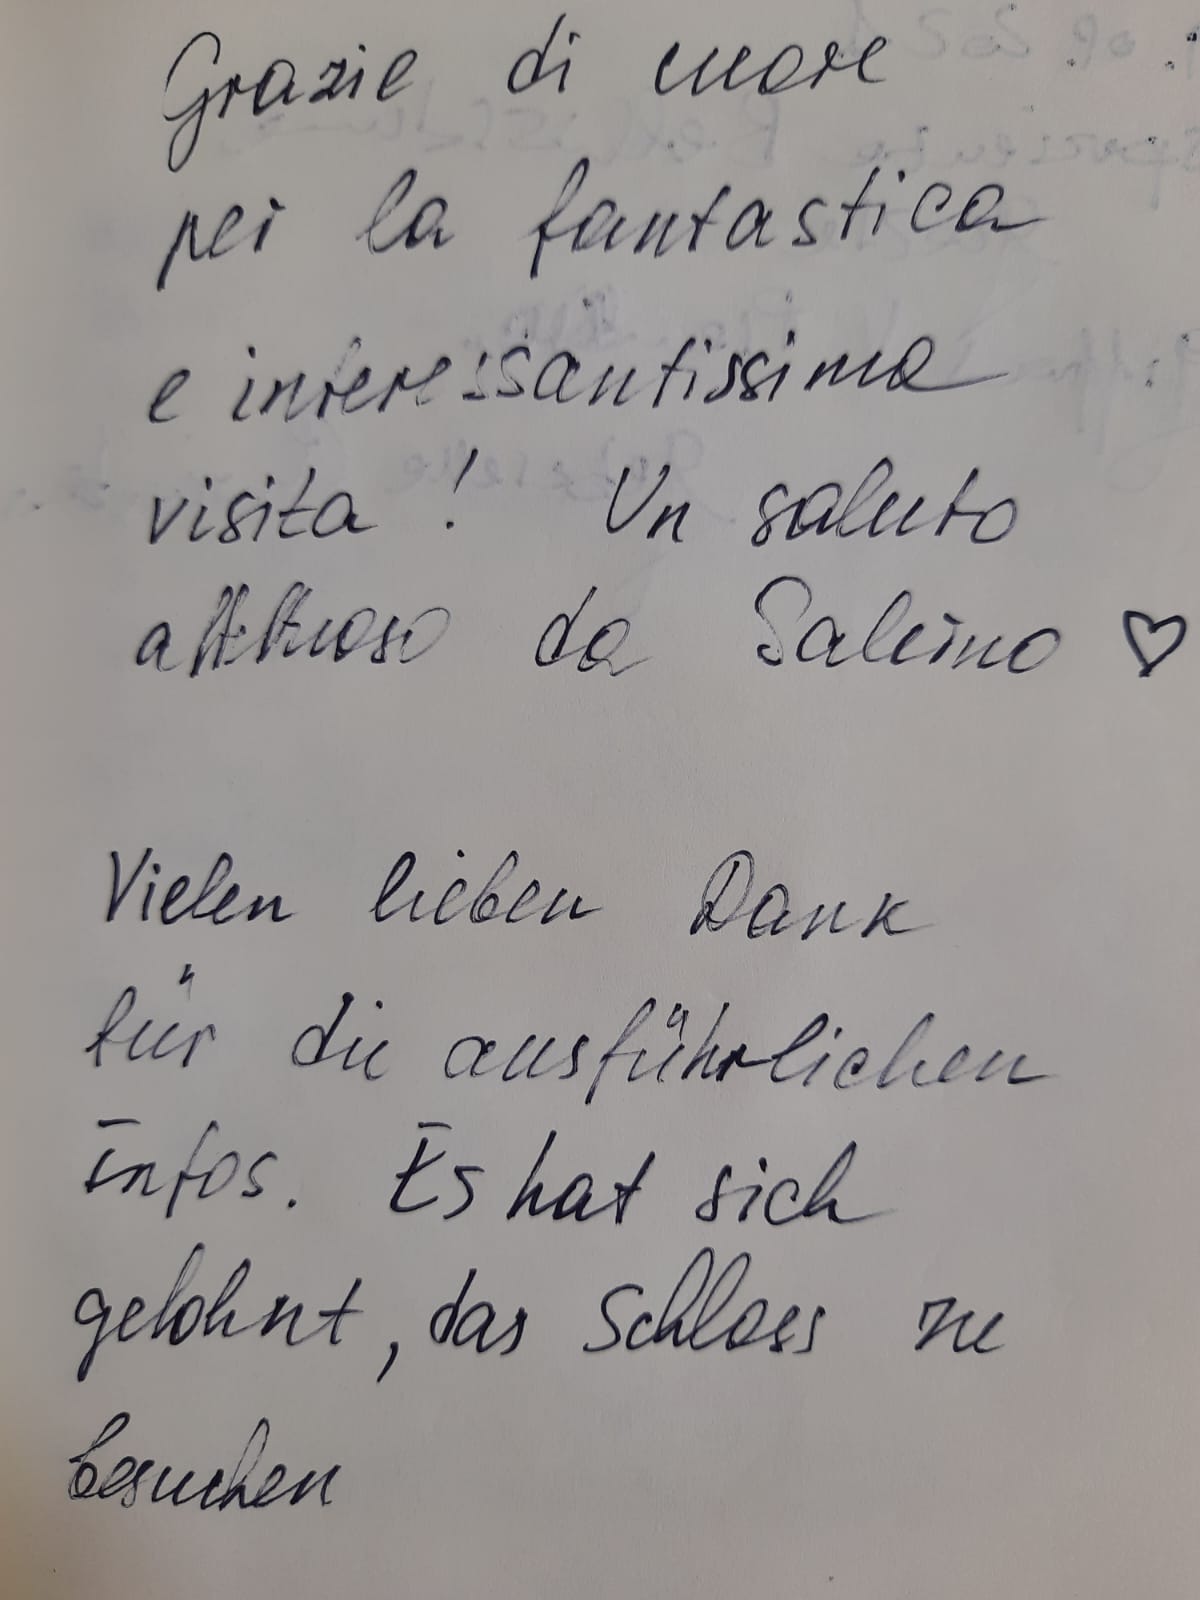 Grazie di cuore
per la fantastica
e interessantissima
visita! Un saluto
affettuoso da Salerno ♡
Vielen lieben Dank
für die ausführlichen
Infos. Es hat sich
gelohnt, das Schloss zu
besuchen